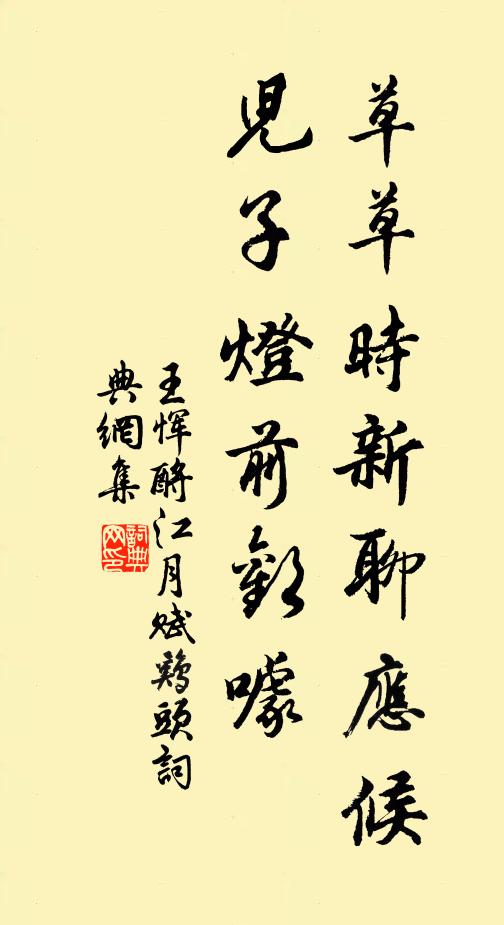 草草時新聊應候
兒子燈前歡噱
王惲酹江月賦鷄頭詞
典網集
詞典網印